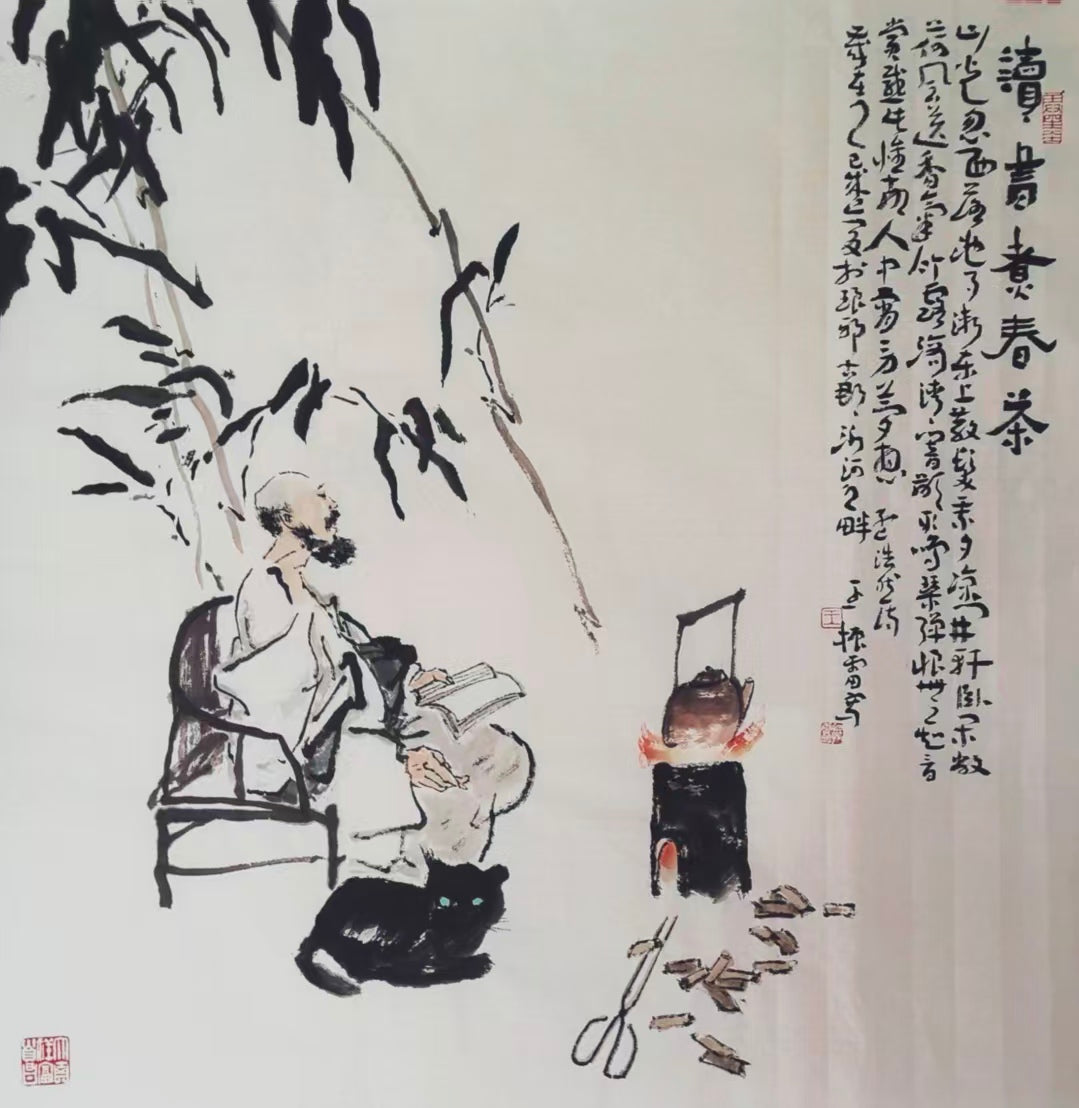 讀書煮春茶
山光忽西落池月漸東上散髮乘夕涼開軒臥閑敞
荷風送香氣竹露滴清響欲取鳴琴彈恨無知音
賞感此懷故人中宵勞夢想 孟浩然詩
歲在乙巳夏於琅邪古郡沂河之畔 王振雷寫